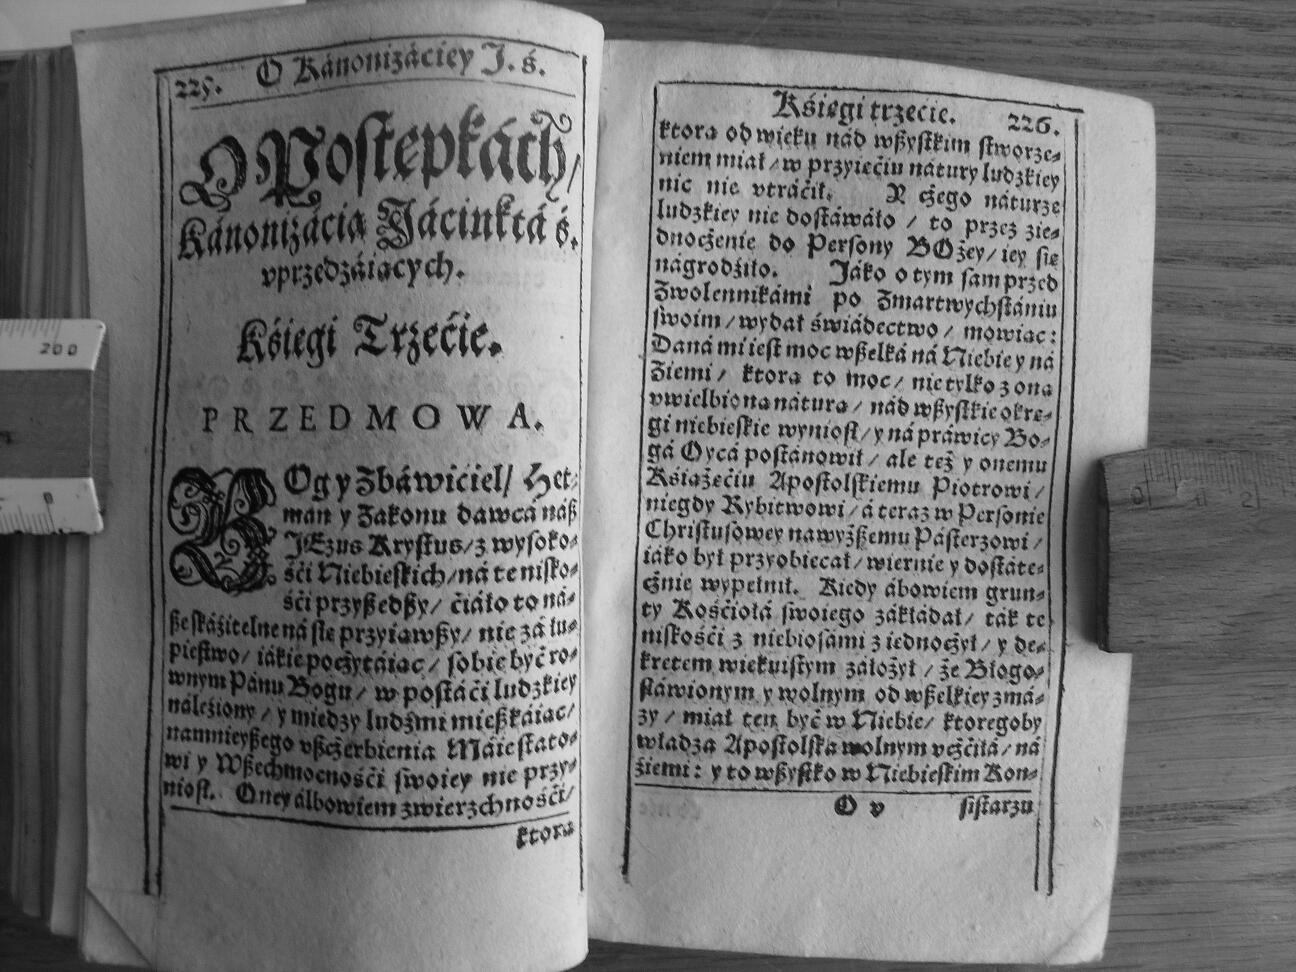 225. O Kánonizáciey J. ś.
O Postępkách/
Kánonizácia Jácinktá ś.
vprzedzáiących.
Kśięgi Trzećie.
PRZEDMOWA.
BOg y Zbáwićiel/ Het-
man y Zakonu dawcá náß
JEzus Krystus/ z wysoko-
śći Niebieskich/ ná te nisko-
śći przyßedßy/ ćiáło to ná-
ße skáźitelne ná się przyiąwßy/ nie zá łu-
piestwo/ iákie poczytáiąc/ sobie być ro-
wnym Pánu Bogu/ w postáći ludzkiey
náleźiony/ y miedzy ludźmi mießkáiąc/
namnieyßego vßczerbienia Máiestato-
wi y Wßechmocnośći swoiey nie przy-
niosł. Oney álbowiem zwierzchnośći/
ktora
Kśięgi trzećie. 226.
ktora od wieku nád wßystkim stworze-
niem miał/ w przyięćiu nátury ludzkiey
nic nie vtráćił. Y czego náturze
ludzkiey nie dostáwáło/ to przez zie-
dnoczenie do Persony BOżey/ iey się
nágrodźiło. Jáko o tym sam przed
Zwolennikámi po Zmartwychstániu
swoim/ wydał świádectwo/ mowiąc:
Daná mi iest moc wßelká ná Niebie y ná
Ziemi/ ktora to moc/ nie tylko z oną
vwielbioną náturą/ nád wßystkie okrę-
gi niebieskie wyniosł/ y ná práwicy Bo-
gá Oycá postánowił/ ale też y onemu
Kśiążęćiu Apostolskiemu Piotrowi/
niegdy Rybitwowi/ á teraz w Personie
Christusowey nawyżßemu Pásterzowi/
iáko był przyobiecał/ wiernie y dostáte-
cznie wypełnił. Kiedy ábowiem grun-
ty Kośćiołá swoiego zákłádał/ ták te
niskośći z niebiosámi z iednoczył/ y de-
kretem wiekuistym záłożył/ że Błogo-
słáwionym y wolnym od wßelkiey zmá-
zy/ miał ten być w Niebie/ ktoregoby
władza Apostolska wolnym vczćiłá/ ná
źiemi: y to wßystko w Niebieskim Kon-
O v sistarzu